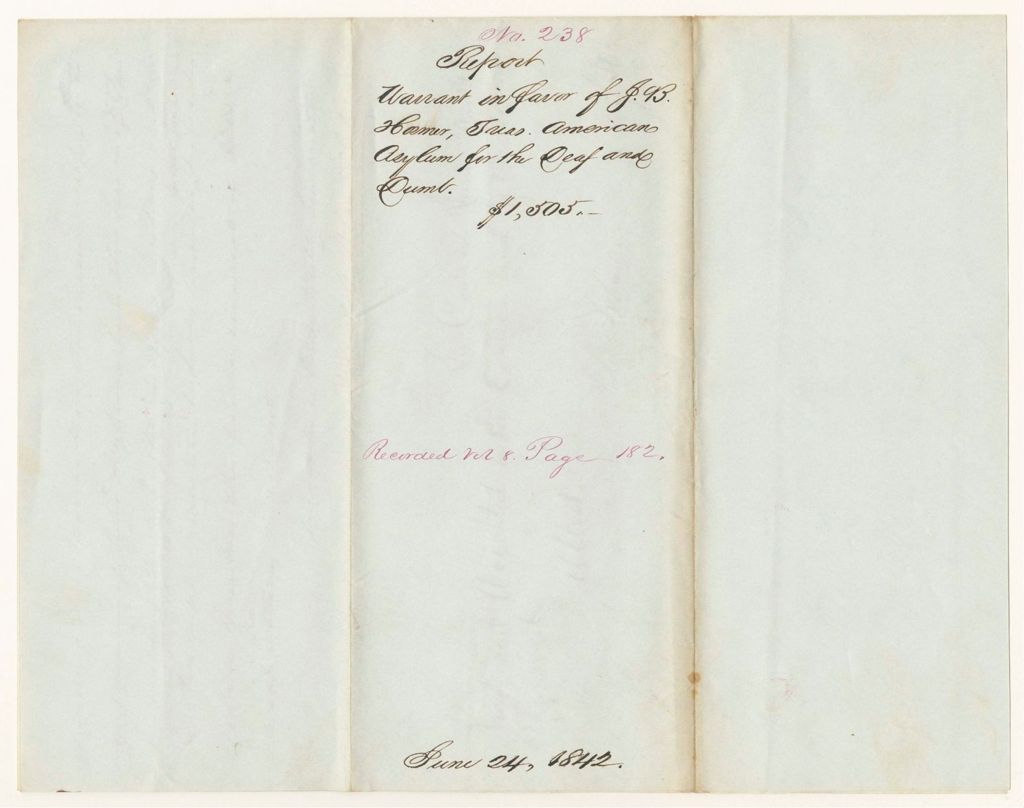 No. 238
Report
Warrant in favor of J. B.
Hosmer, Treas. American
Asylum for the Deaf and
Dumb.
$1,505.–
Recorded Vol 8. Page 182.
June 24, 1842.